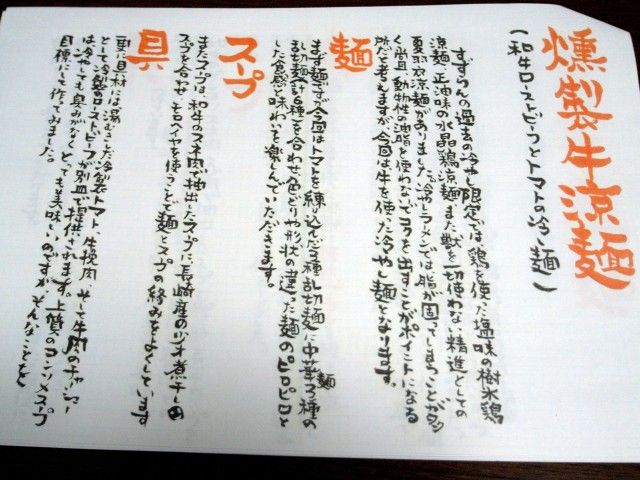 燻製牛涼麺
(和牛ローストビーフとトマトの冷し麺)
ずずらんの過去の冷やし限定では鶏を使った塩味の樹氷鶏
涼麺、正油味の水晶鶏涼麺、また獣を一切使わない精進としての
夏羽衣涼麺がありました。冷やしラーメンでは脂が固ってしまうことが
く尚且、動物性の油脂を使わないでコクを出すことがポイントになる
所だと考えますが、今回は牛を使った冷やし麺となります。
麺
まず麺ですが今回はトマトを練り込んだ3種乱切麺に中華麺3種の
乱切麺、計6種を合わせ色どりや形状の違った麺のピロピロと
した食感を味わい楽しんでいただきます。
スープ
またスープは、和牛のスネ肉で抽出したスープに長崎産のアジ煮干し
スープを合せ、モロヘイヤを使うことで麺とスープの絡みをよくしています
具
更に具材には湯むきした冷製トマト、牛挽肉、そして牛肉のチャーシュー
として冷製ローストビーフが別皿で提供されます。上質のコンソメスープ
は冷やしても臭みがなくとっても美味しいのですが、そんなことを
目標にして作ってみました。